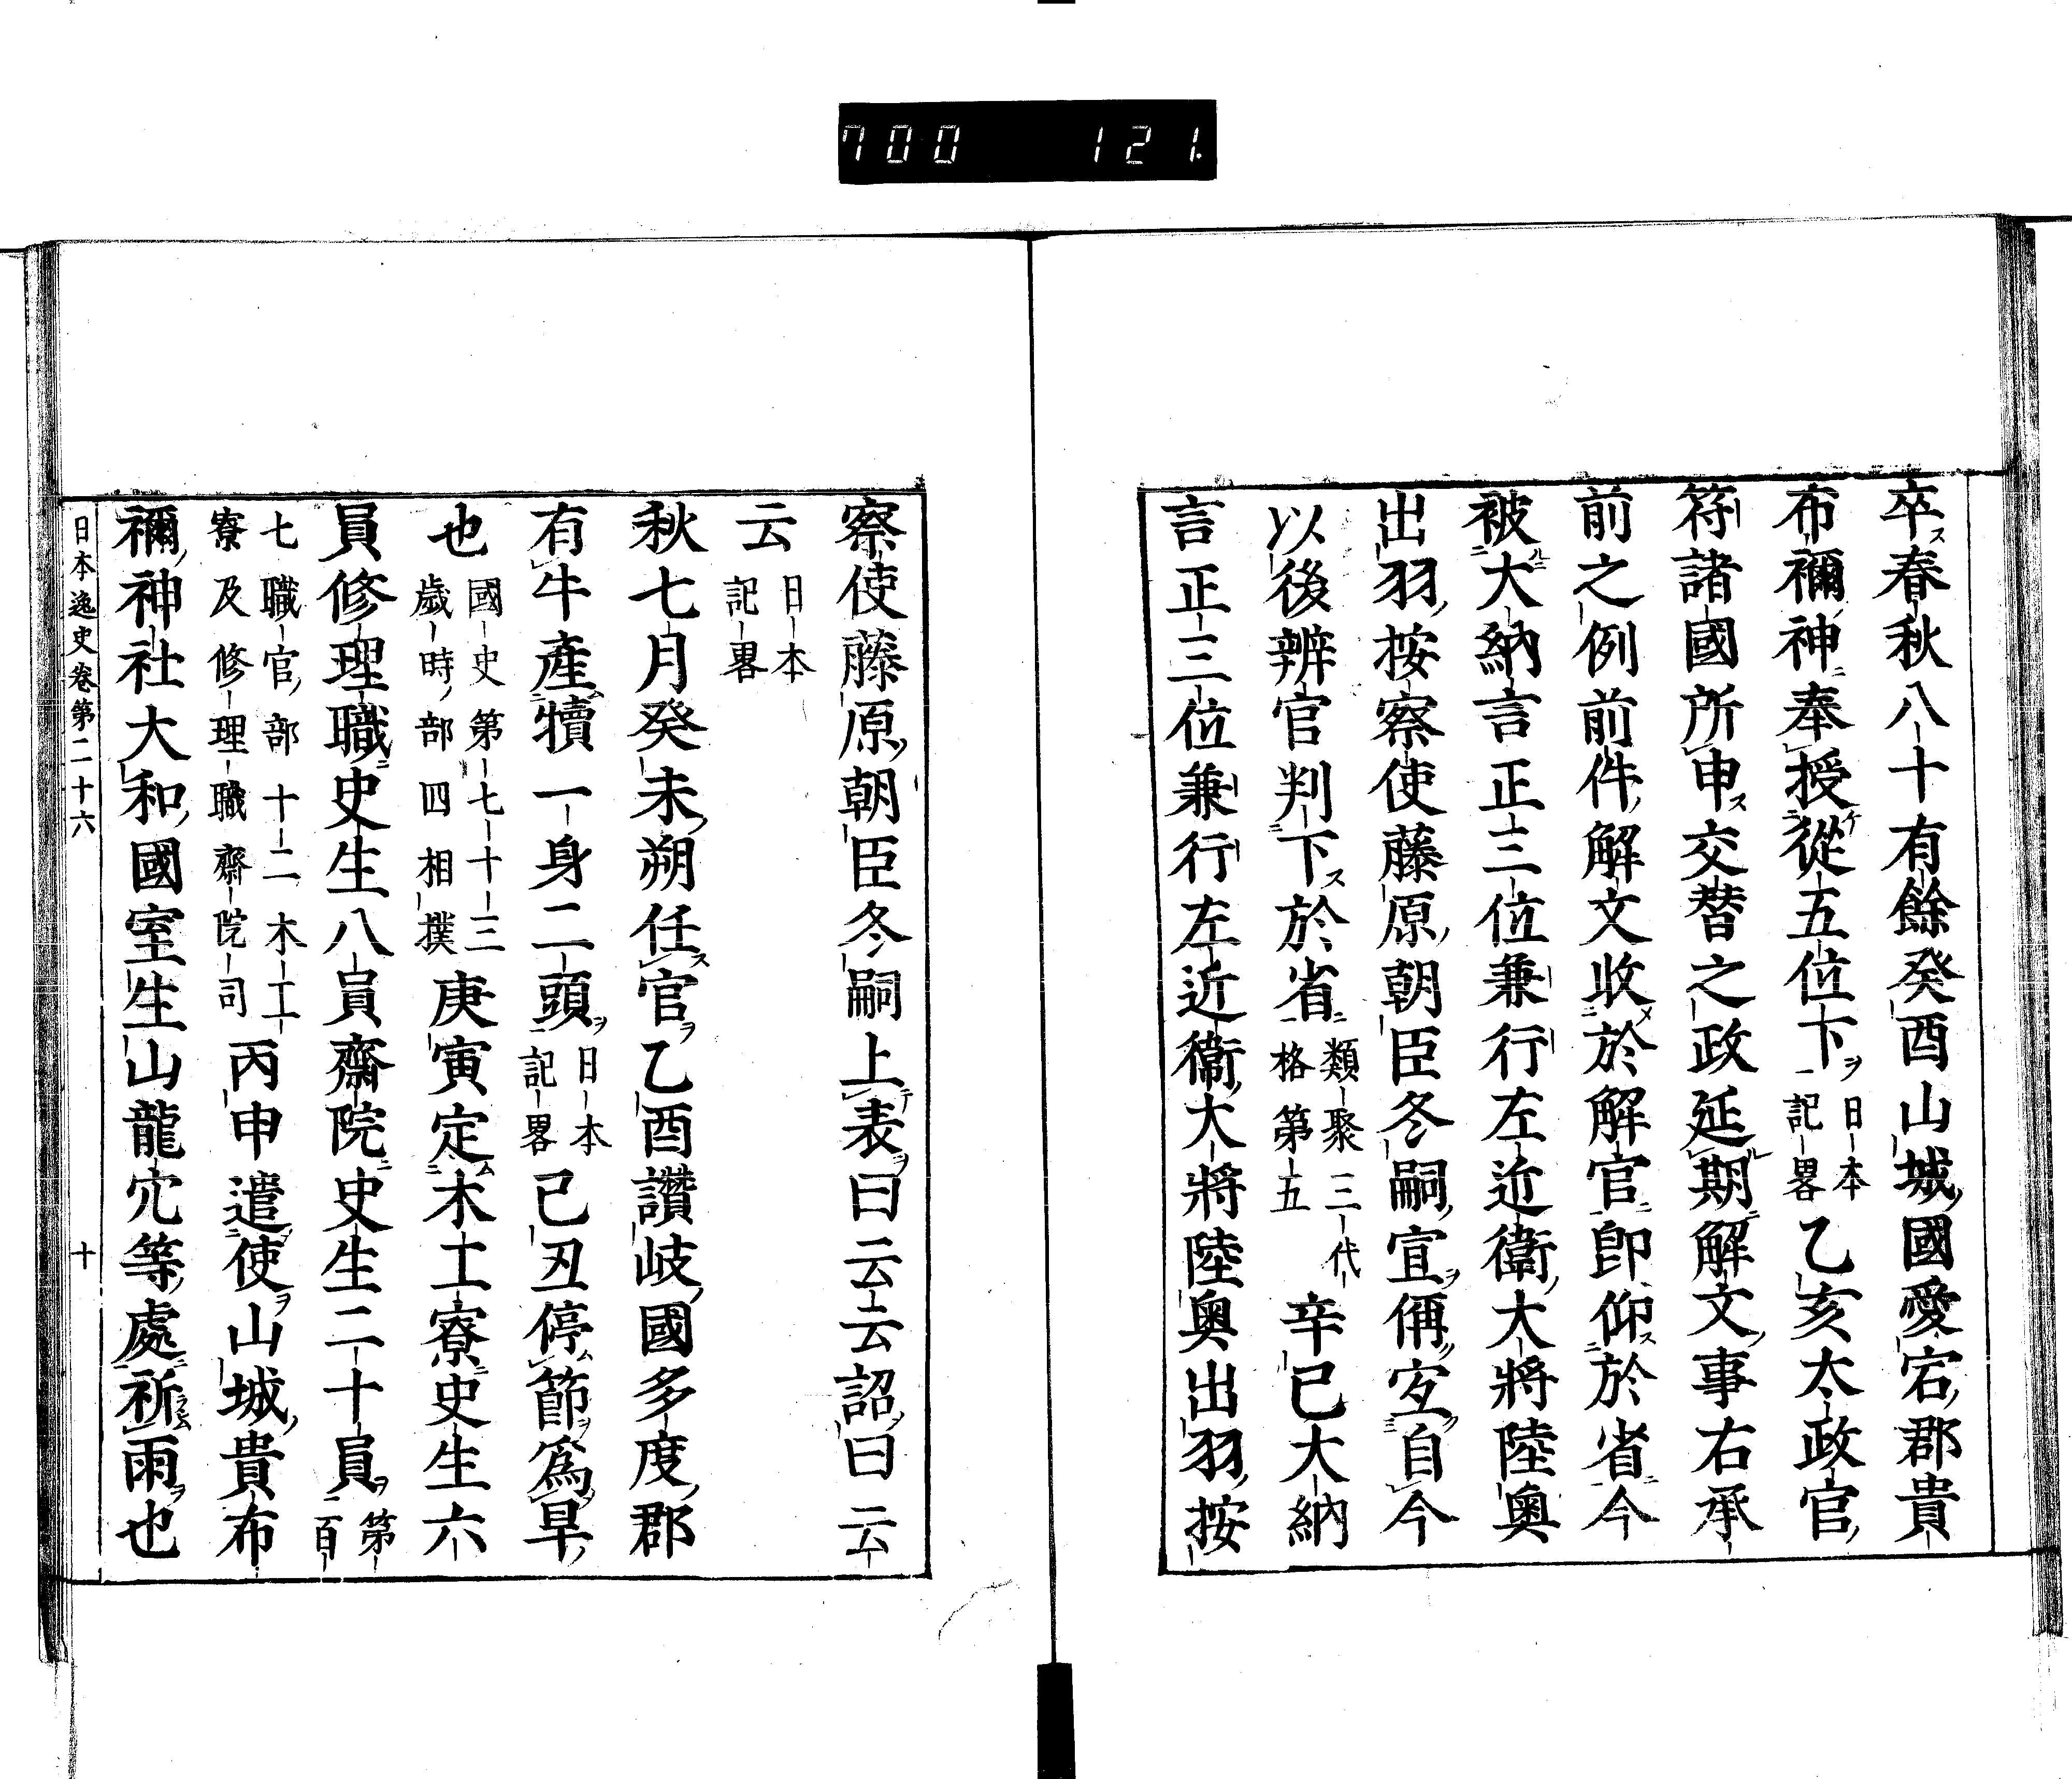 700 121.
卒春秋八十有餘癸酉山城國愛宕郡貴
布禰神奉授從五位下日本記畧乙亥太政官
符諸國所申交替之政延期解文事右承
前之例前件解文收於解官即仰於省今
被大納言正三位兼行左近衛大將陸奧
出羽按察使藤原朝臣冬嗣宣偁宜自今
以後辨官判下於省類聚三代格第五辛巳大納
言正三位兼行左近衛大將陸奧出羽按
察使藤原朝臣冬嗣上表曰云云詔曰云
云日本記畧
秋七月癸未朔任官乙酉讚岐國多度郡
有牛產犢一身二頭日本記畧己丑停節爲旱
也國史第七十三歲時部四相撲庚寅定木工寮史生六
員修理職史生八員齋院史生二十員第百
七職官部十二木工寮及修理職齋院司丙申遣使山城貴布
禰神社大和國室生山龍穴等處祈雨也
日本逸史卷第二十六 十